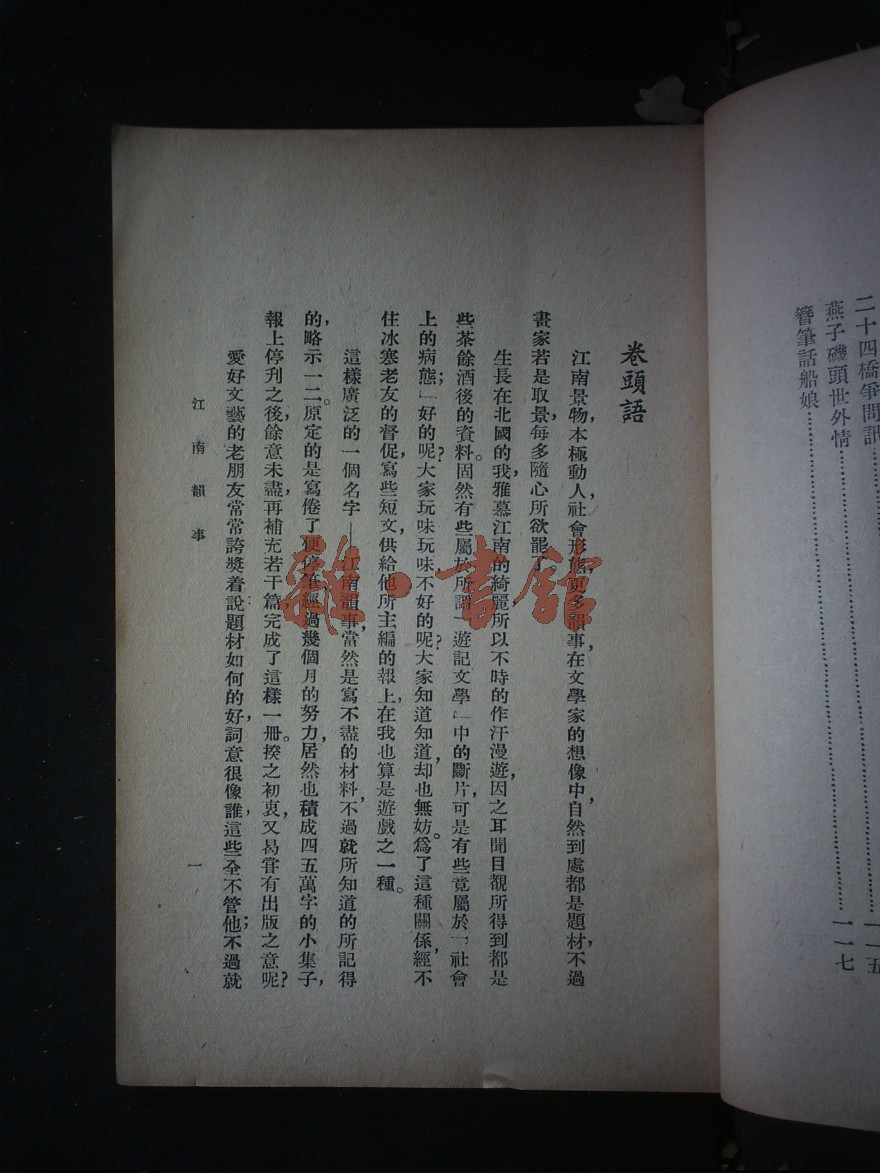 二十四橋爭問訊……………………一一五
燕子磯頭世外情……………………
簪筆話船娘……………………一一七
卷頭語
江南景物本極動人，社會形態更多韻事，在文學家的想像中，自然到處都是題材，不過
畫家若是取景，每多隨心所欲罷了。
生長在北國的我，雅慕江南的綺麗，所以不時的作汗漫遊，因之耳聞目覩所得到都是
些茶餘酒後的資料。固然有些屬於所謂「遊記文學」中的斷片，可是有些竟屬於「社會
上的病態；」好的呢？大家玩味玩味，不好的呢？大家知道知道，却也無妨。爲了這種關係，經不
住冰塞老友的督促，寫些短文，供給他所主編的報上，在我也算是遊戲之一種。
這樣廣泛的一個名字——江南韻事，當然是寫不盡的材料，不過就所知道的所記得
的，略示一二。原定的是寫倦了便停筆，經過幾個月的努力，居然也積成四五萬字的小集子，
報上停刋之後，餘意未盡，再補充若干篇，完成了這樣一冊。揆之初衷，又曷甞有出版之意呢？
愛好文藝的老朋友常常誇獎着說題材如何的好，詞意很像誰，這些全不管他；不過就
江南韻事
一
雜·書館